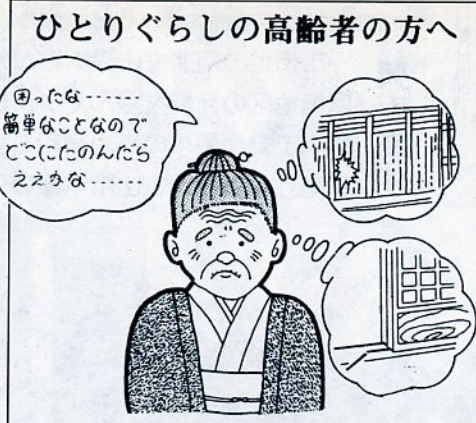 ひとりぐらしの高齢者の方へ
困ったな……
簡単なことなので
どこにたのんだら
ええかな……